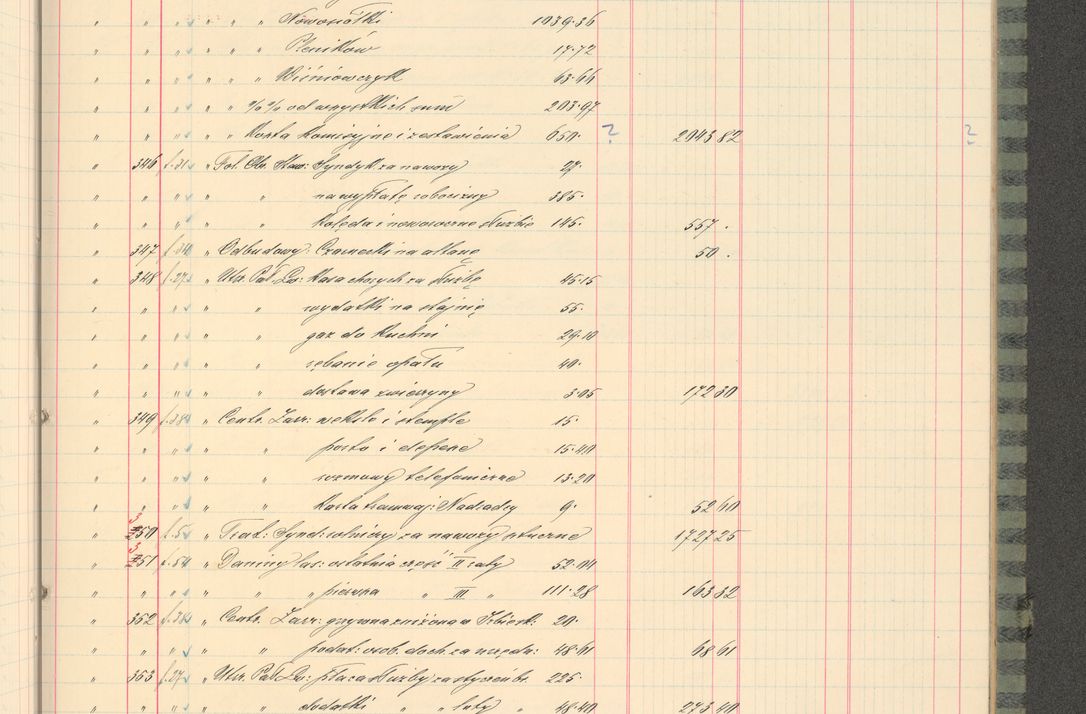 " " " " " " " Nowosiółki 1039·36
" " " " " " " Pleników 17·72
" " " " " " " Wiśniowczyk 63·64
" " " " " " % % od wszystkich sum 203·97
" " " " " " Koszta komisyjne i zestawienia 650· ? 2943 82 ?
" 346 f.31 " Fol. Ob. Staw: Syndyk. za nawozy 27·
" " " " " " na wypłatę robocizny 385·
" " " " " " kolęda i noworoczne służbie 145· 557 ·
" 347 f.34 " Odbudowy: Czarnecki na altanę 50 ·
" 348 f.27 " Utrz. Pał. Lw: Kasa chorych za służbę 45·15
" " " " " " wydatki na stajnię 55·
" " " " " " gaz do kuchni 29·10
" " " " " " rębanie opału 40·
" " " " " " dostawa zwierzyny 3·05 172 30
" 349 f.38 " Centr. Zarz: weksle i stemple 15·
" " " " " " porto i depesze 15·40
" " " " " " rozmowy telefoniczne 13·20
" " " " " " Karta tramwaj: Nadradcy 9· 52 60
" 350 f.5 " Trat: Synd: rolniczy za nawozy sztuczne 1727 25
" 351 f.54 " Daniny las: ostatnia część II raty 52·04
" " " " " " pierwsza " III " 111·28 163 32
" 352 f.38 " Centr. Zarz: grzywna zniżona w 20·
" " " " " " podat: osob. doch. za urzędn: 48·61 68 61
" 353 f.27 " Utrz. Pał. Lw: płaca służby za styczeń br. 225·
" " " " " " dodatki " " luty " 48·40 273 40